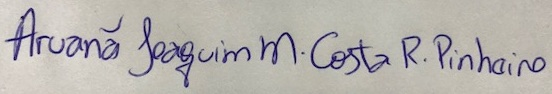 Aruanã Joaquim M. Costa R. Pinheiro